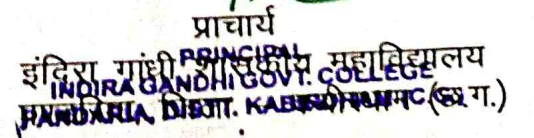 प्राचार्य
PRINCIPAL
इंदिरा गांधी शासकीय महाविद्यालय
INDIRA GANDHI GOVT. COLLEGE
PANDARIA, DISTT. KABIRDHAM (C.G.)
(छ.ग.)